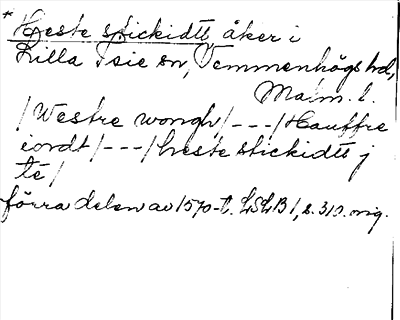 * Heste stickidtt åker i
Lilla Isie sn, Vemmenhögs hd,
Malm. l.
/Westre wongh/---/Hauffre
iordt/---/heste stickidtt j
té/
förra delen av 1570-t. LSLB 1, s. 310. orig.